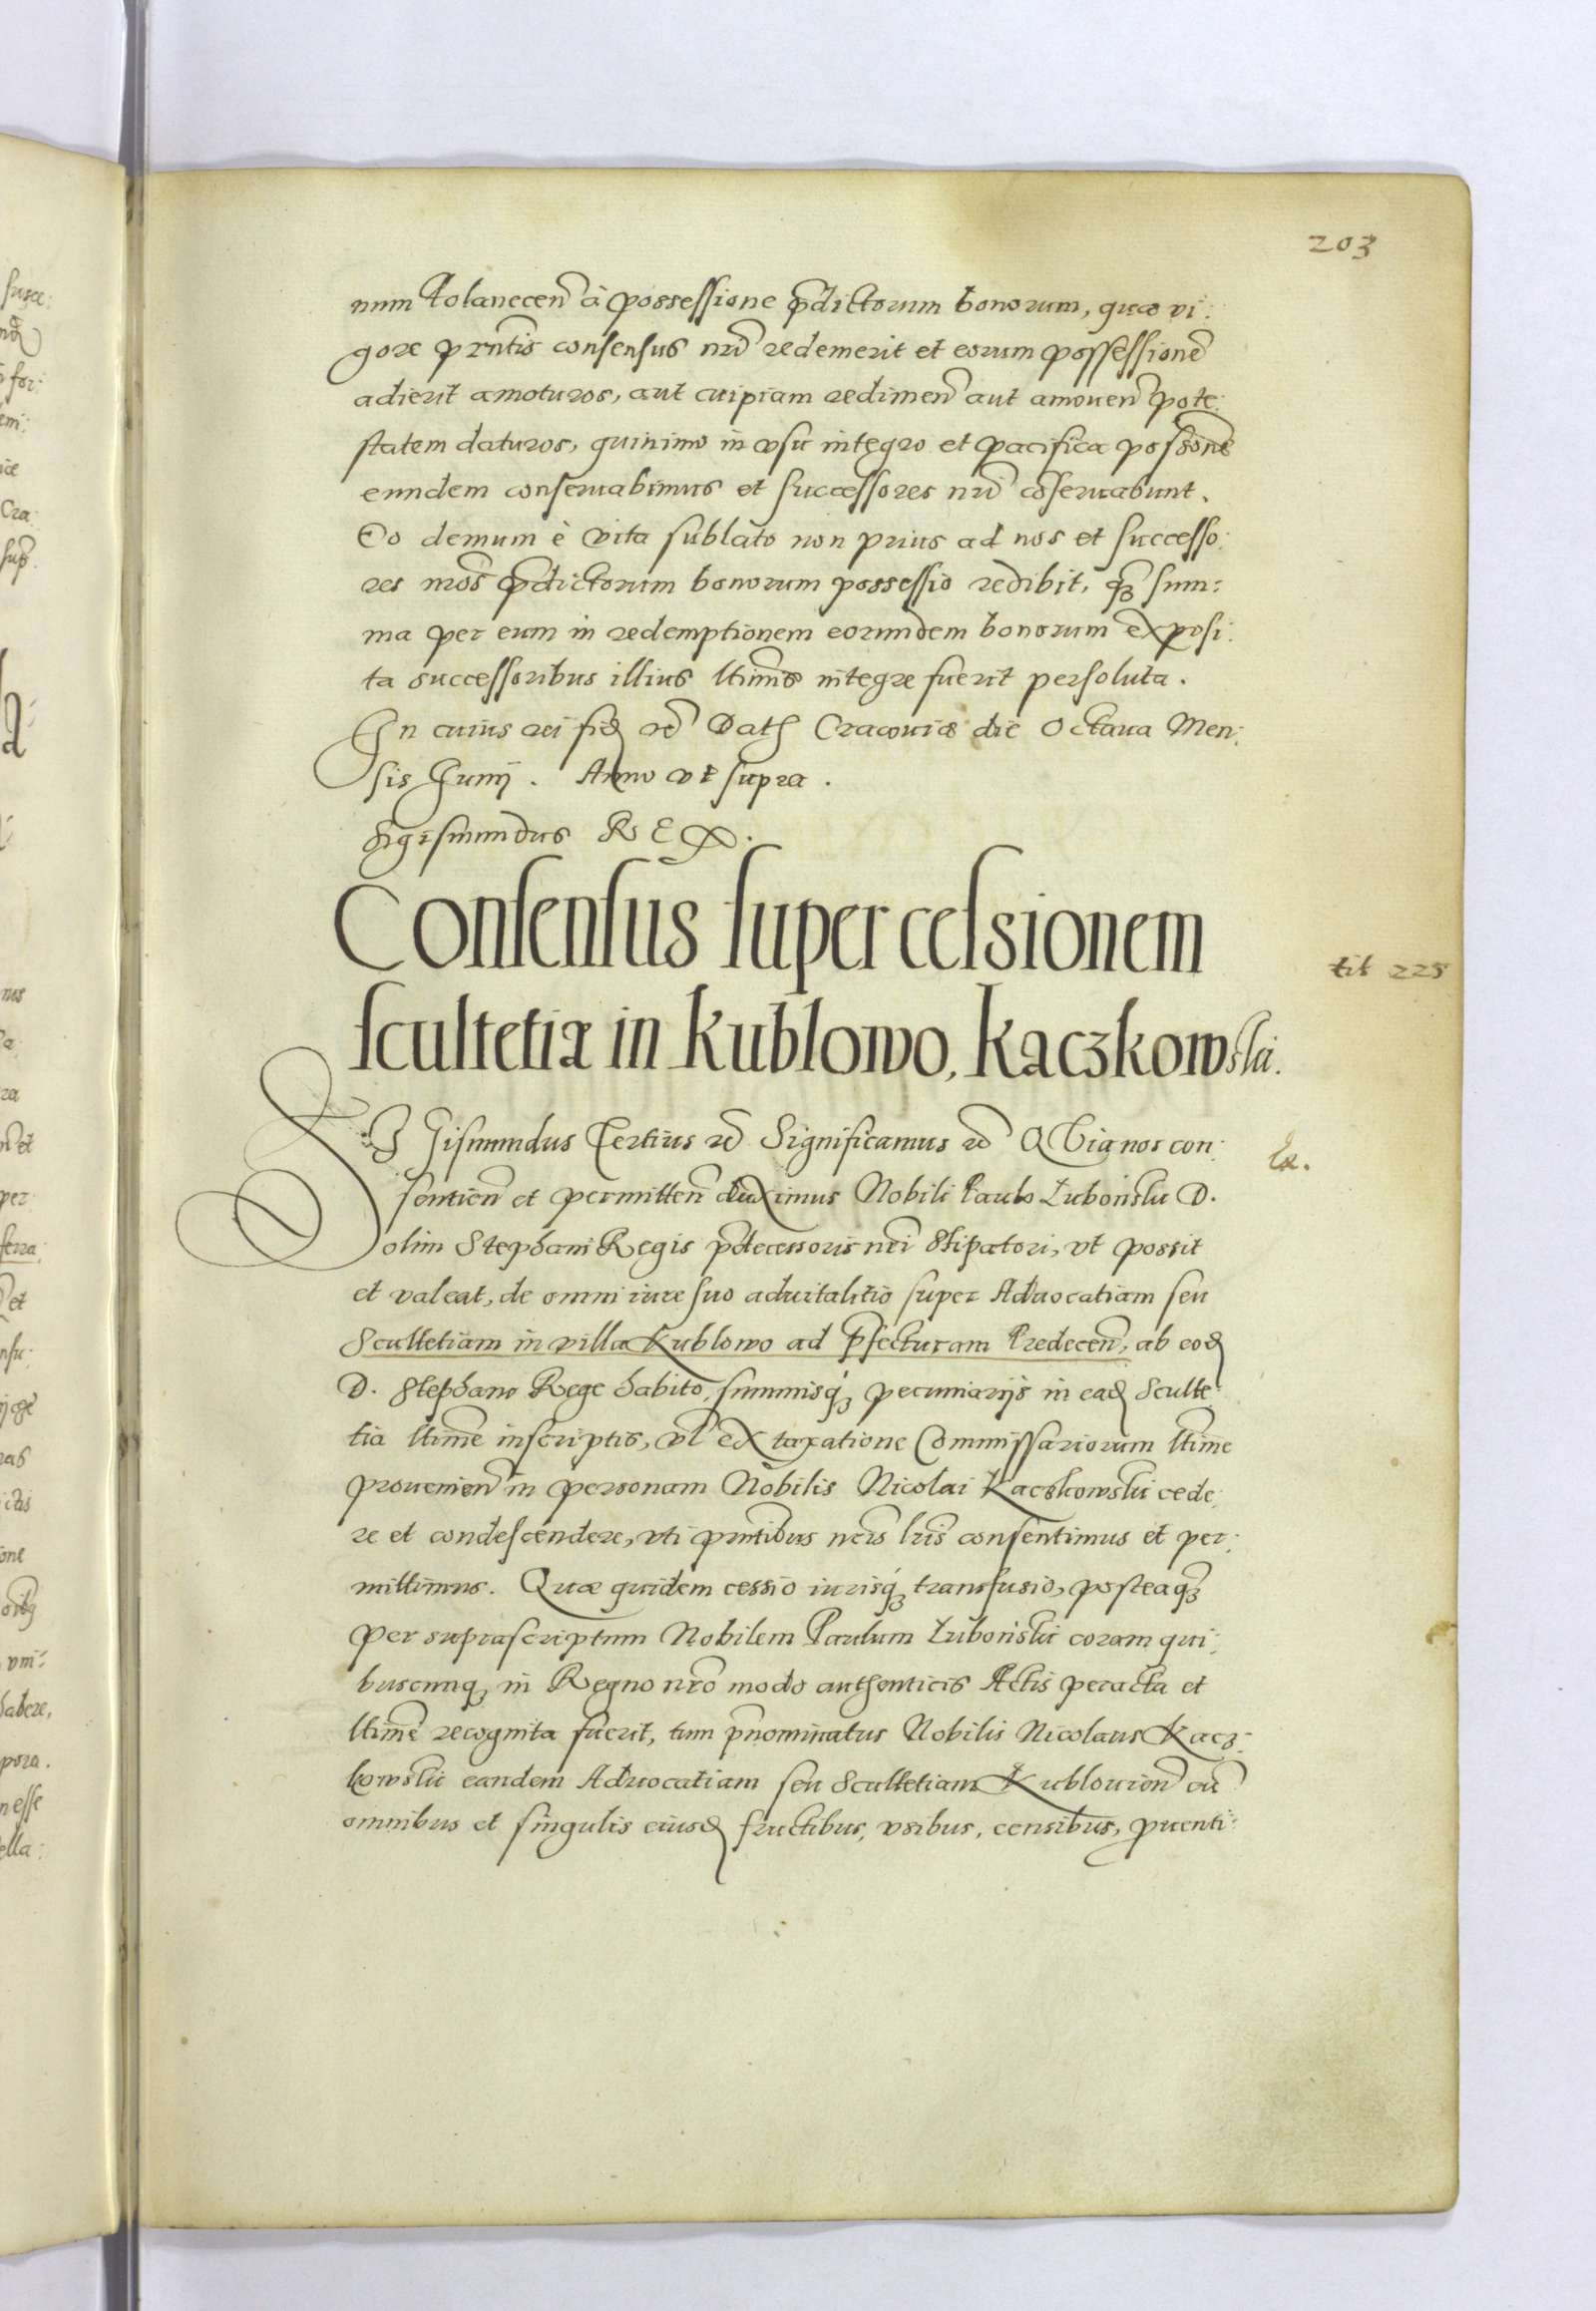 203
num Polanecen̄ à possessione p̄dictorum bonorum, quæ vi:
gore pr̄ntis consensus nrĩ redemerit et eorum possessionē
adierit amoturos, aut cuipiam redimen̄ aut amouen̄ pote:
statem daturos, quinimo in vsu integro et pacifica possione
eundem conseruabimus et successores nrĩ cōseruabunt.
Eo demum è vita sublato non prius ad nos et successo:
res nr̄os p̄dictorum bonorum possessio redibit, qȝ̄ sum:
ma per eum in redemptionem eorundem bonorum exposi:
ta successoribus illius ltimis integre fuerit persoluta.
In cuius rei fid. etc̄ Dat. Cracouiæ die Octaua Men:
sis Junij. Anno vt supra.
Sigismundus REX.
Consensus super cessionem
scultetiæ in Kublowo, Kaczkowski.
tit 225
SIGismundus Tertius etc̄ Significamus etc̄ Quia nos con:
sentien̄ et permitten̄ duximus Nobili Paulo Łuboński D.
olim Stephani Regis p̄decessoris nrĩ Stipatori, vt possit
et valeat, de omni iure suo aduitalitio super Aduocatiam seu
Scultetiam in villa Kublowo ad p̄fecturam Predecen̄, ab eod.
D. Stephano Rege habito, summisqȝ pecuniarijs in ead. Sculte:
tia ltimē inscriptis, vl̄ ex taxatione Commissariorum ltimē
prouenien̄ in personam Nobilis Nicolai Kaczkowski cede:
re et condescendere, vti pr̄ntibus nr̄is lr̄is consentimus et per:
mittimus. Quæ quidem cessio iurisqȝ transfusio, posteaqȝ̄
per suprascriptum Nobilem Paulum Łuboński coram qui:
buscunqȝ in Regno nrō modo authenticis Actis peracta et
ltimē recognita fuerit, tum p̄nominatus Nobilis Nicolaus Kacz:
kowski eandem Aduocatiam seu Scultetiam Kublouien̄ cū
omnibus et singulis eiusd. fructibus, vsibus, censibus, puenti: